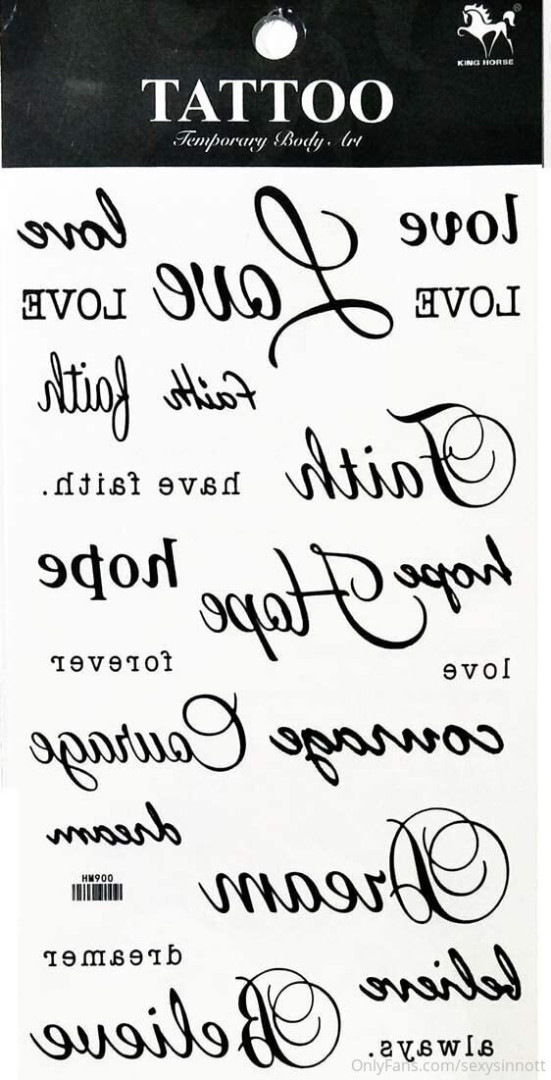 KING HORSE
TATTOO
Temporary Body Art
love
love
Love
LOVE
LOVE
faith
faith
Faith
have faith.
hope
hope
Hope
forever
love
Courage
courage
dream
Dream
HM900
dreamer
believe
Believe
always.
OnlyFans.com/sexysinnott